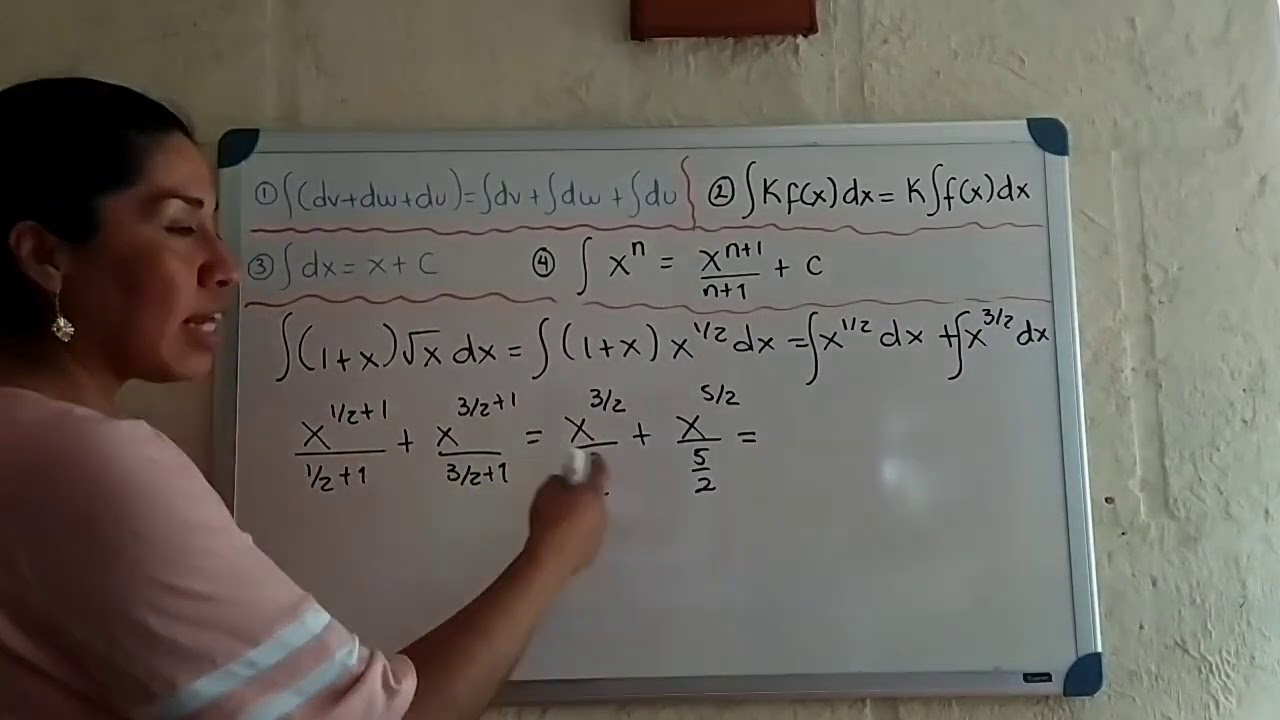 ① ∫(dv+dw+du)=∫dv+∫dw+∫du ② ∫Kf(x)dx=K∫f(x)dx
③ ∫dx=x+C ④ ∫x^n = x^(n+1)/(n+1) + C
∫(1+x)√x dx = ∫(1+x)x^(1/2)dx = ∫x^(1/2)dx + ∫x^(3/2)dx
x^(1/2+1)/(1/2+1) + x^(3/2+1)/(3/2+1) = x^(3/2) + x^(5/2)/(5/2) =